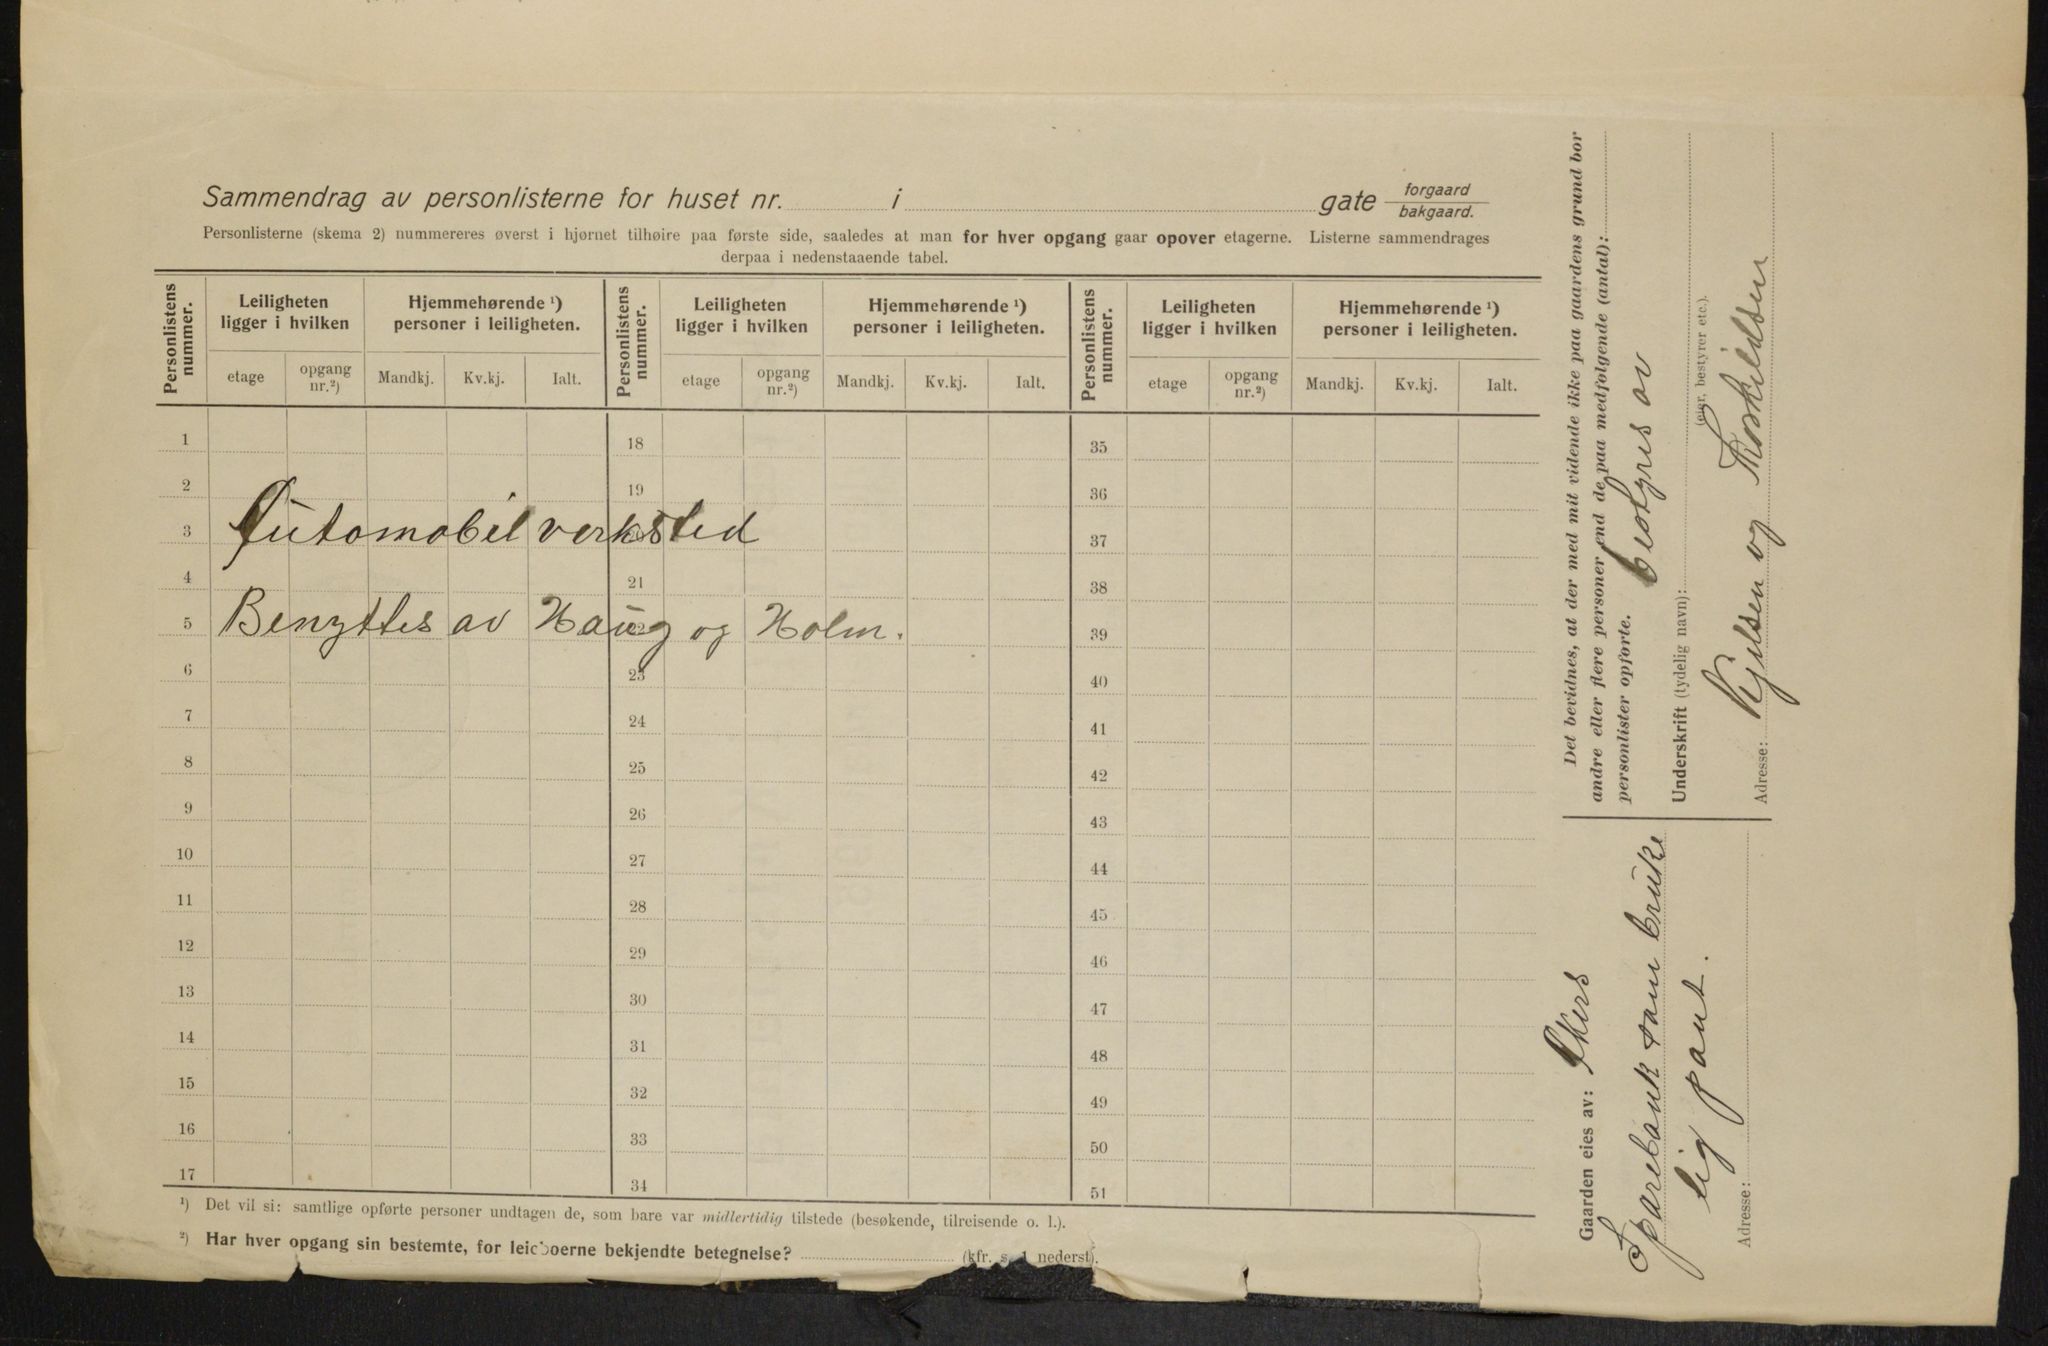 Sammendrag av personlisterne for huset nr. i gate forgaard bakgaard.
Personlisterne (skema 2) nummereres øverst i hjørnet tilhøire paa første side, saaledes at man for hver opgang gaar opover etagerne. Listerne sammendrages
derpaa i nedenstaaende tabel.
Personlistens nummer. Leiligheten ligger i hvilken Hjemmehørende ¹) personer i leiligheten. Personlistens nummer. Leiligheten ligger i hvilken Hjemmehørende ¹) personer i leiligheten. Personlistens nummer. Leiligheten ligger i hvilken Hjemmehørende ¹) personer i leiligheten.
etage opgang nr.²) Mandkj. Kv.kj. Ialt. etage opgang nr.²) Mandkj. Kv.kj. Ialt. etage opgang nr.²) Mandkj. Kv.kj. Ialt.
1 18 35
2 19 36
3 Automobilverksted 37
4 21 38
5 Benyttes av Haug og Holm. 22 39
6 23 40
7 24 41
8 25 42
9 26 43
10 27 44
11 28 45
12 29 46
13 30 47
14 31 48
15 32 49
16 33 50
17 34 51
¹) Det vil si: samtlige opførte personer undtagen de, som bare var midlertidig tilstede (besøkende, tilreisende o. l.).
²) Har hver opgang sin bestemte, for leieboerne bekjendte betegnelse? (kfr. s. 1 nederst).
Det bevidnes, at der med mit vidende ikke paa gaardens grund bor
andre eller flere personer end de paa medfølgende (antal):
personlister opførte. bestyres av
Underskrift (tydelig navn):
(eier, bestyrer etc.).
Kjelsen og Torkildsen
Adresse:
Gaarden eies av: Akers
Sparebank som bruke
lig pant.
Adresse: